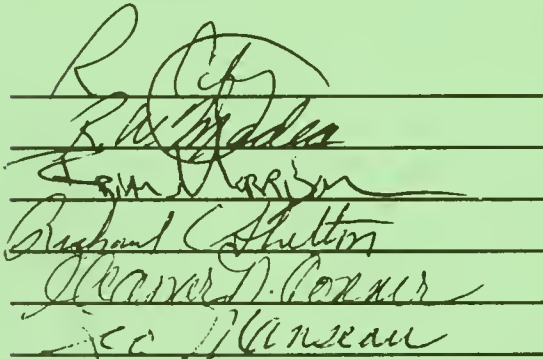 R
R W Maden
Brian Morrison
Richard C Shelton
Eleanor D. Conner
Leo Manseau